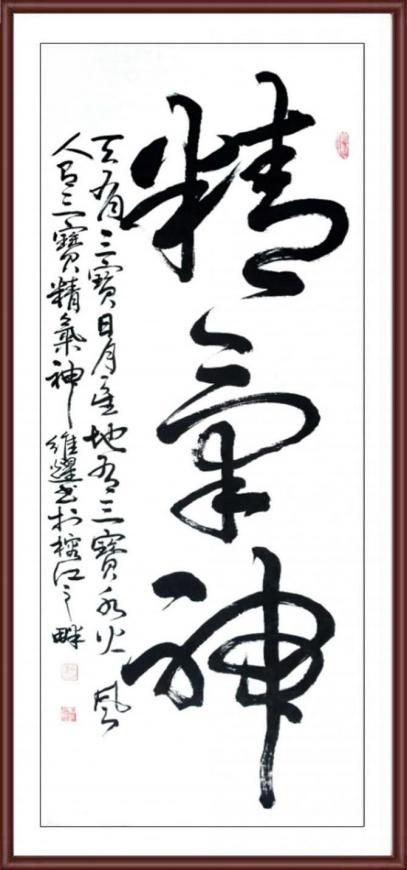 精氣神
天有三寶日月星地有三寶水火風
人有三寶精氣神 維耀书於榕江之畔